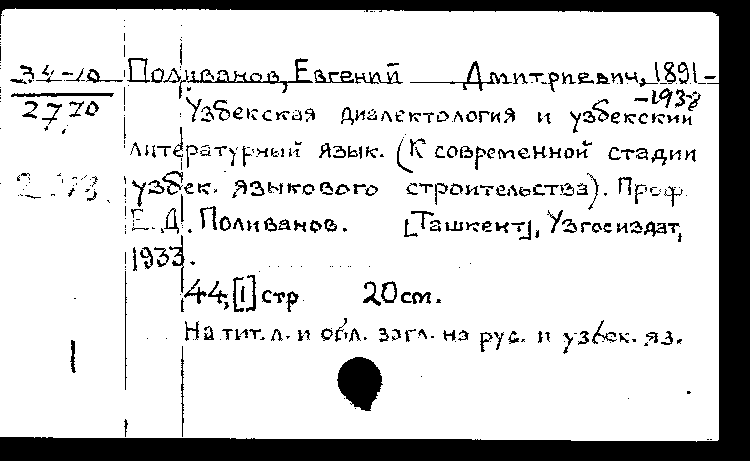 34-10
27,70
Поливанов, Евгений Дмитриевич, 1891-
-1938
Узбекская диалектология и узбекский
литературный язык. (К современной стадии
узбек. языкового строительства). Проф.
Е. Д. Поливанов. [Ташкент], Узгосиздат,
1933.
44, [1] стр 20 см.
На тит. л. и обл. загл. на рус. и узбек. яз.